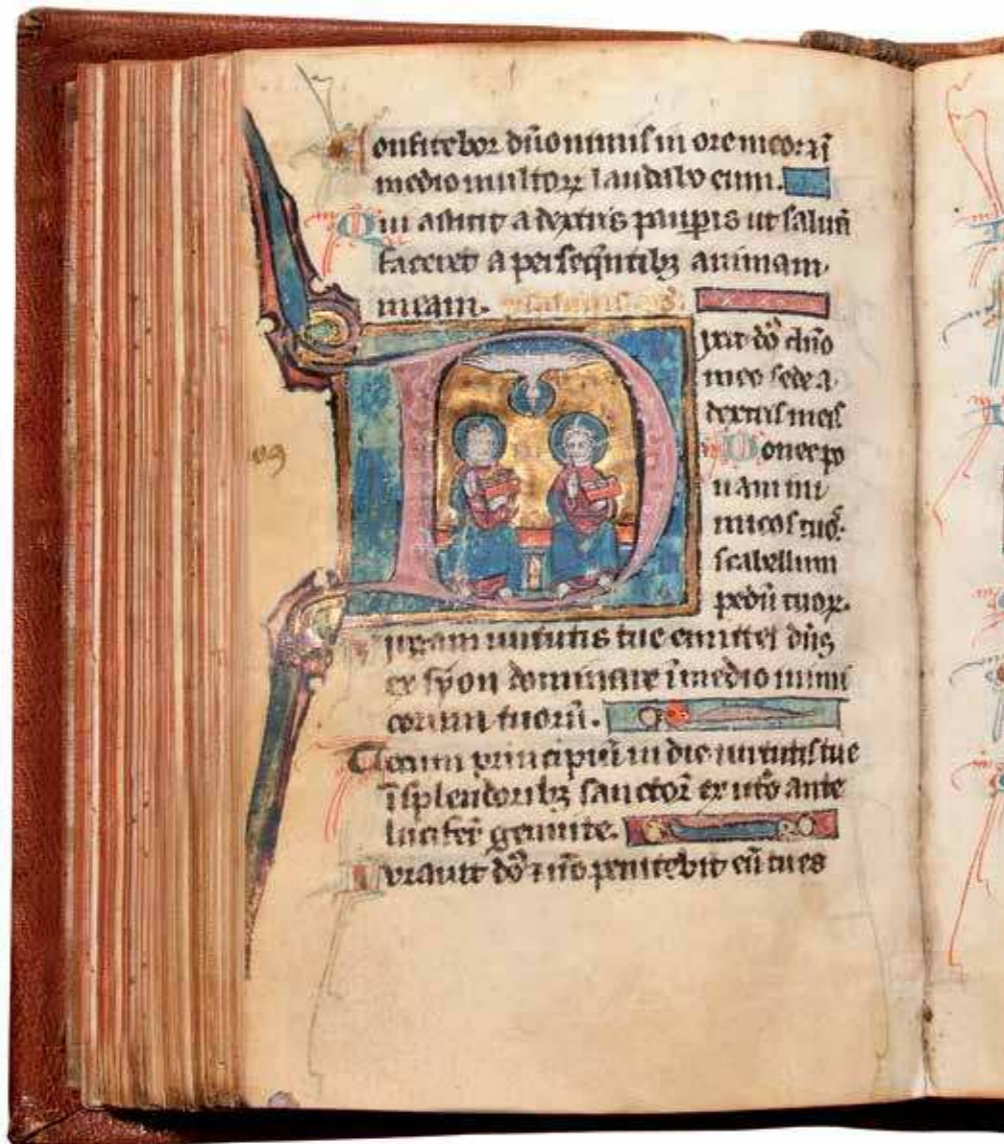 Confitebor dño nimis in ore meo: et ĩ
medio multoꝝ laudabo eum.
Qui astitit a dextris paupis ut saluã
faceret a perseq̃ntibꝫ animam
meam.
Dixit dñs dño
meo sede a
dextris meis
Donec po
nam ini
micos tuos
scabellum
pedũ tuoꝝ.
Uirgam uirtutis tue emittet dñs
ex syon dominare ĩ medio inimi
corum tuorũ.
Tecum principiũ in die uirtutis tue
ĩ splendoribꝫ sanctoꝝ ex uto ante
lucifeꝝ genui te.
Iurauit dñs et nõ penitebit eũ tu es